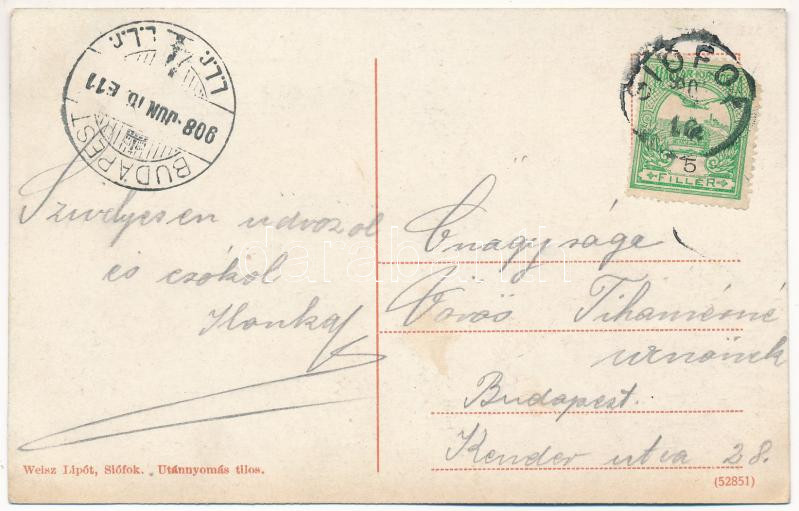 BUDAPEST
908 JUN 16. E11
SIÓFOK
5
FILLÉR
Szivélyesen üdvözöl
és csókol
Ilonka
Őnagysága
Vörös Tihamérné
urnőnek
Budapest.
Kender utca 28.
Weisz Lipót, Siófok. Utánnyomás tilos.
(52851)
darabanth